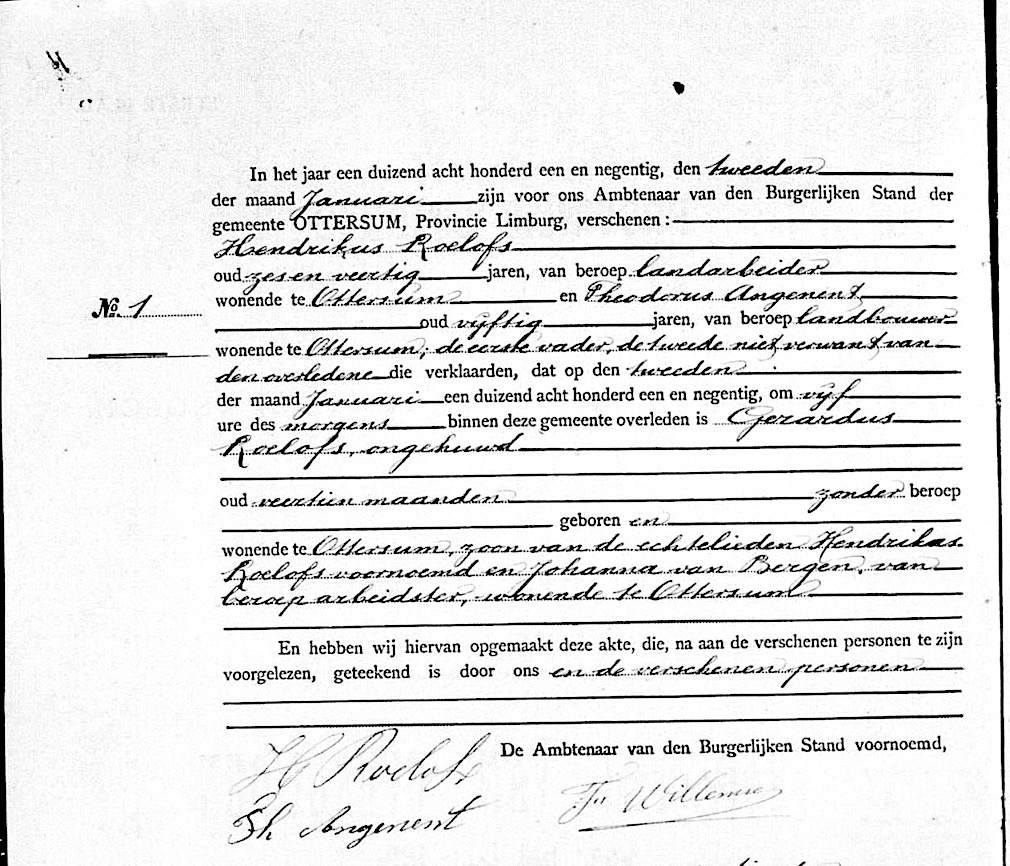 In het jaar een duizend acht honderd een en negentig, den tweeden
der maand Januari zijn voor ons Ambtenaar van den Burgerlijken Stand der
gemeente OTTERSUM, Provincie Limburg, verschenen:
Hendrikus Roelofs
oud zes en veertig jaren, van beroep landarbeider
wonende te Ottersum en Theodorus Angenent
No. 1
oud vijftig jaren, van beroep landbouwer
wonende te Ottersum; de eerste vader, de tweede niet verwant van
den overledene die verklaarden, dat op den tweeden
der maand Januari een duizend acht honderd een en negentig, om vijf
ure des morgens binnen deze gemeente overleden is Gerardus
Roelofs, ongehuwd
oud veertien maanden zonder beroep
geboren en
wonende te Ottersum, zoon van de echtelieden Hendrikus
Roelofs voornoemd en Johanna van Bergen, van
beroep arbeidster, wonende te Ottersum
En hebben wij hiervan opgemaakt deze akte, die, na aan de verschenen personen te zijn
voorgelezen, geteekend is door ons en de verschenen personen
De Ambtenaar van den Burgerlijken Stand voornoemd,
H Roelofs
Th Angenent
Willems